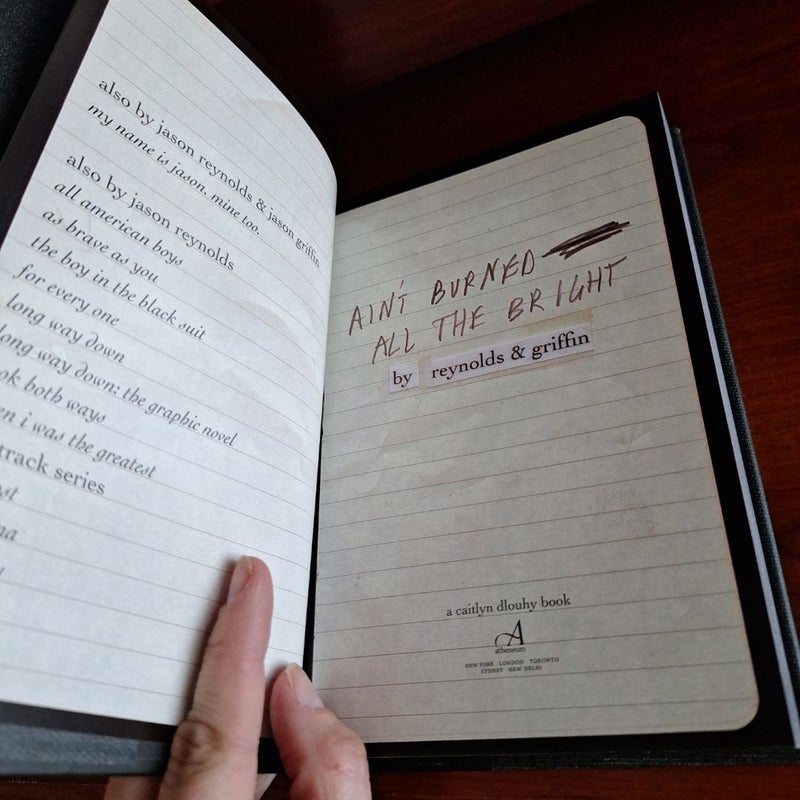 also by jason reynolds & jason griffin
my name is jason. mine too.
also by jason reynolds
all american boys
as brave as you
the boy in the black suit
for every one
long way down
long way down: the graphic novel
both ways
i was the greatest
track series
AIN'T BURNED
ALL THE BRIGHT
by reynolds & griffin
a caitlyn dlouhy book
A
atheneum
NEW YORK LONDON TORONTO
SYDNEY NEW DELHI